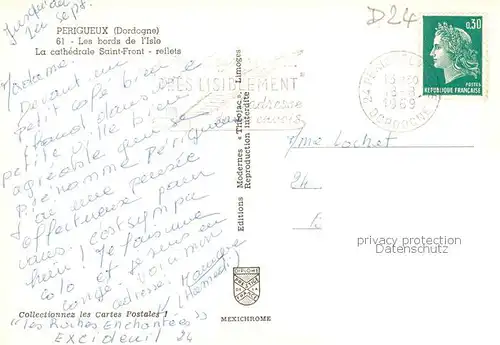 Jusqu'au
1er Sept.
D24
PERIGUEUX (Dordogne)
61 - Les bords de l'Isle
La cathédrale Saint-Front - reflets
0,30
POSTES
REPUBLIQUE FRANÇAISE
24 PERIGUEUX
1969
DORDOGNE
TRES LISIBLEMENT
adresse
Madame,
Devant un
petit café bien
chaud, dans une
petite ville bien
agréable qui se
prénomme Périgueux
j'ai une pensée
affectueuse pour
vous. C'est sympa
hein! Je fais une
colo et je suis en
congé. Voici mon
adresse:
Mme Lochet
24
Editions Modernes « Théojac », Limoges
Reproduction interdite
Collectionnez les Cartes Postales !
MEXICHROME
"Les Roches Enchantées"
Excideuil 24
properly protected
Datenschutz